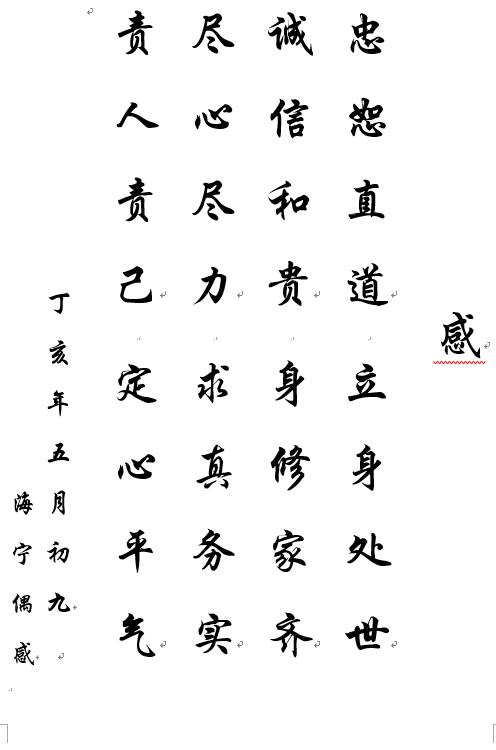 感
忠恕直道立身处世
诚信和贵身修家齐
尽心尽力求真务实
责人责己定心平气
丁亥年五月初九
海宁偶感